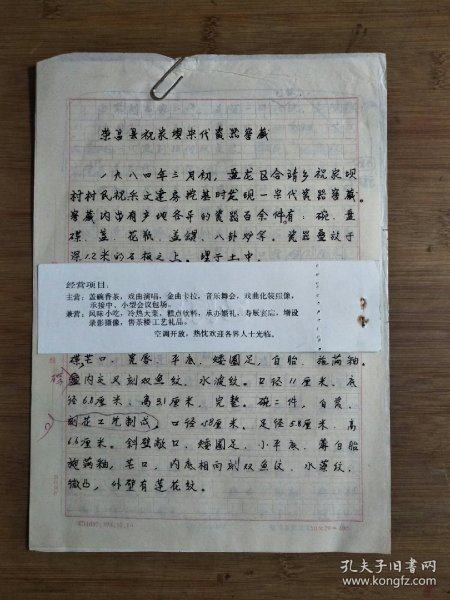 荣昌县祝家坝宋代瓷器窖藏
一九八四年三月初，盘龙区合靖乡祝家坝
村村民祝乐文建房挖基时发现一宋代瓷器窖藏。
窖藏内出有产地各异的瓷器百余件有：碗、盏
碟、盖、花瓶、盖碟、八卦炉等。瓷器叠放于
深1.2米的石板之上，埋于土中。
经营项目：
主营：盖碗香茶，戏曲演唱，金曲卡拉，音乐舞会，戏曲化装照像，
承接中、小型会议包场。
兼营：风味小吃，冷热大菜，糕点饮料，承办婚礼、寿辰宴席，增设
录影摄像，售茶楼工艺礼品。
空调开放，热忱欢迎各界人士光临。
碟芒口，宽唇、平底、矮圈足，白胎、施荫釉。
碟
内交叉刻双鱼纹、水波纹。口径11厘米、底
径6.8厘米、高3.1厘米，完整。碗二件，白瓷，
刻花工艺制成，口径15.8厘米、足径5.8厘米、高
6.6厘米。斜壁敞口、矮圈足、小平底、薄白胎
施荫釉，芒口，内底相向刻双鱼纹、水藻纹、
微凸，外壁有莲花纹。
孔夫子旧书网